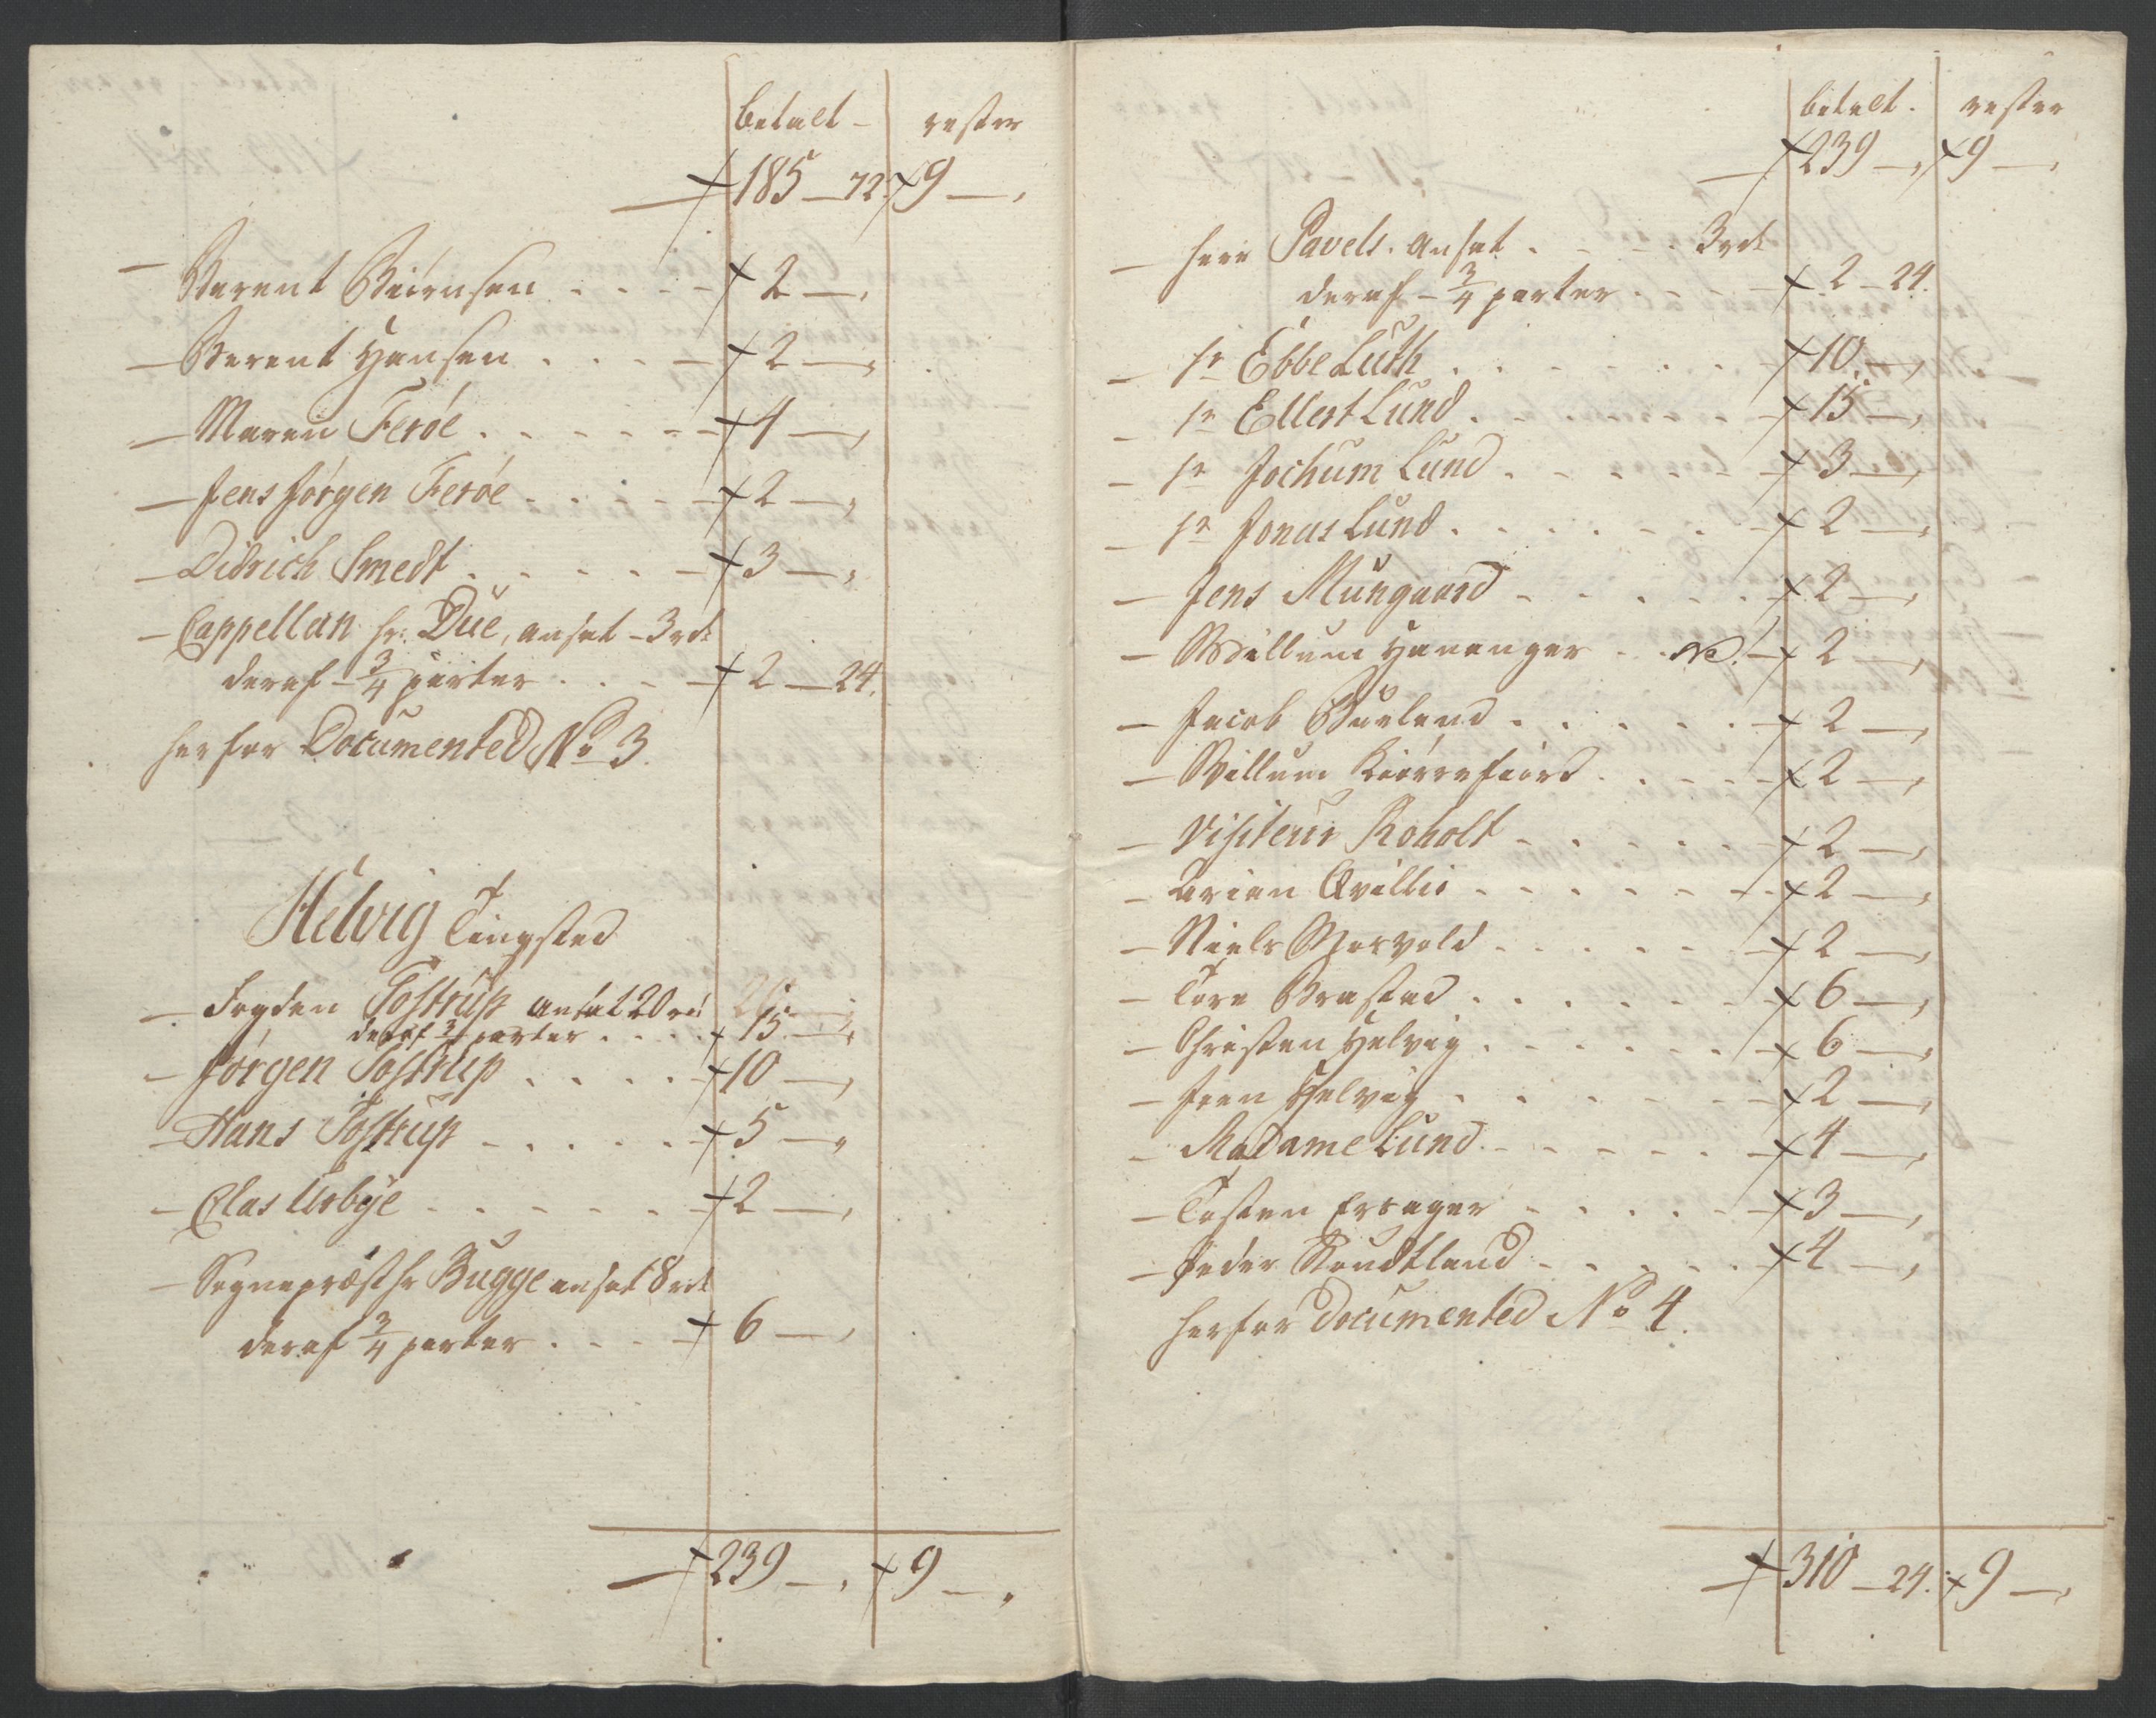 betalt - rester
185 - 72. 9 -
- Berent Biörnsen . . . . 2 -
- Berent Hansen . . . . 2 -
- Maren Feröe . . . . . 4 -
- Jens Jörgen Feröe . . . . 2 -
- Didrich Smedt . . . . . 3 -
- Cappellan hr: Due, ansat - 3 rdr
deraf - 3/4 parter . . . 2 - 24.
herfor Documented No 3.
Helvig Tingsted
- Fogden Tostrup ansat 20 rd
deraf 3/4 parter . . . . 15. -
- Jörgen Tostrup . . . . 10 -
- Hans Tostrup . . . . . 5 -
- Clas Urbye . . . . . . 2 -
- Sognepræst hr Bugge ansat 8 rdr
deraf 3/4 parter . . . . 6 -
239 - 9 -
betalt. rester
239 - 9 -
- herr Pavels. ansat . . . . 3 rdr
deraf - 3/4 parter . . . . 2 - 24.
- sr Ebbe Luth . . . . . . 10. -
- sr Ellert Lund . . . . . . 15 -
- sr Jochum Lund . . . . . 3 -
- sr Jonas Lund . . . . . . 2 -
- Jens Mungaard . . . . . 2 -
- Willum Hananger . . . 2 -
- Jacob Bueland . . . . . 2 -
- Willum Kiörrefiord . . . . 2 -
- Visiteur Roholt . . . . . 2 -
- Arian Qvillie . . . . . . 2 -
- Niels Skosvold . . . . . 2 -
- Tore Brasted . . . . . . 6 -
- Christen Helvig . . . . . . 6 -
- Jren Helvig . . . . . . 2 -
- Madame Lund . . . . . . 4 -
- Tosten Ersager . . . . . 3 -
- Peder Stoudtland . . . . . 4 -
herfor Documented No 4.
310 - 24. 9 -